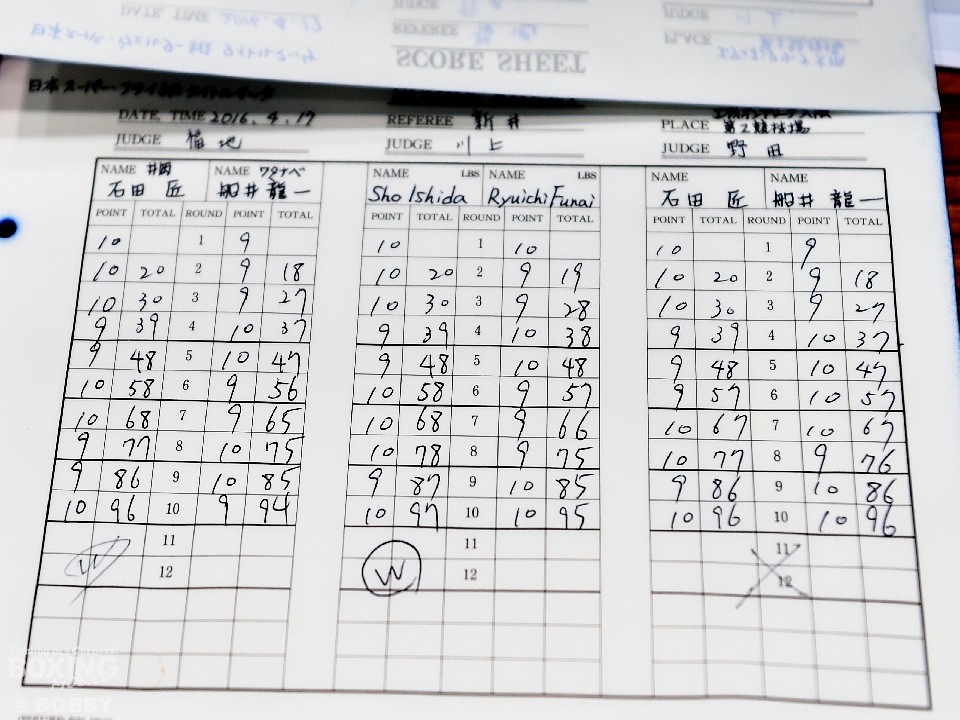 DATE, TIME 2016.4.17
REFEREE
SCORE SHEET
JUDGE
PLACE
日本スーパーフライ級タイトルマッチ
DATE, TIME 2016.4.17 REFEREE 新井 PLACE 第2競技場
JUDGE 福地 JUDGE 川上 JUDGE 野田
NAME 井岡 NAME ワタナベ NAME LBS NAME LBS NAME NAME
石田 匠 船井龍一 Sho Ishida Ryuichi Funai 石田 匠 船井龍一
POINT TOTAL ROUND POINT TOTAL POINT TOTAL ROUND POINT TOTAL POINT TOTAL ROUND POINT TOTAL
10 1 9 10 1 10 10 1 9
10 20 2 9 18 10 20 2 9 19 10 20 2 9 18
10 30 3 9 27 10 30 3 9 28 10 30 3 9 27
9 39 4 10 37 9 39 4 10 38 9 39 4 10 37
9 48 5 10 47 9 48 5 10 48 9 48 5 10 47
10 58 6 9 56 10 58 6 9 57 9 57 6 10 57
10 68 7 9 65 10 68 7 9 66 10 67 7 10 67
9 77 8 10 75 10 78 8 9 75 10 77 8 9 76
9 86 9 10 85 9 87 9 10 85 9 86 9 10 86
10 96 10 9 94 10 97 10 10 95 10 96 10 10 96
11 11 11
W 12 W 12 12
BOXING
© BOBBY